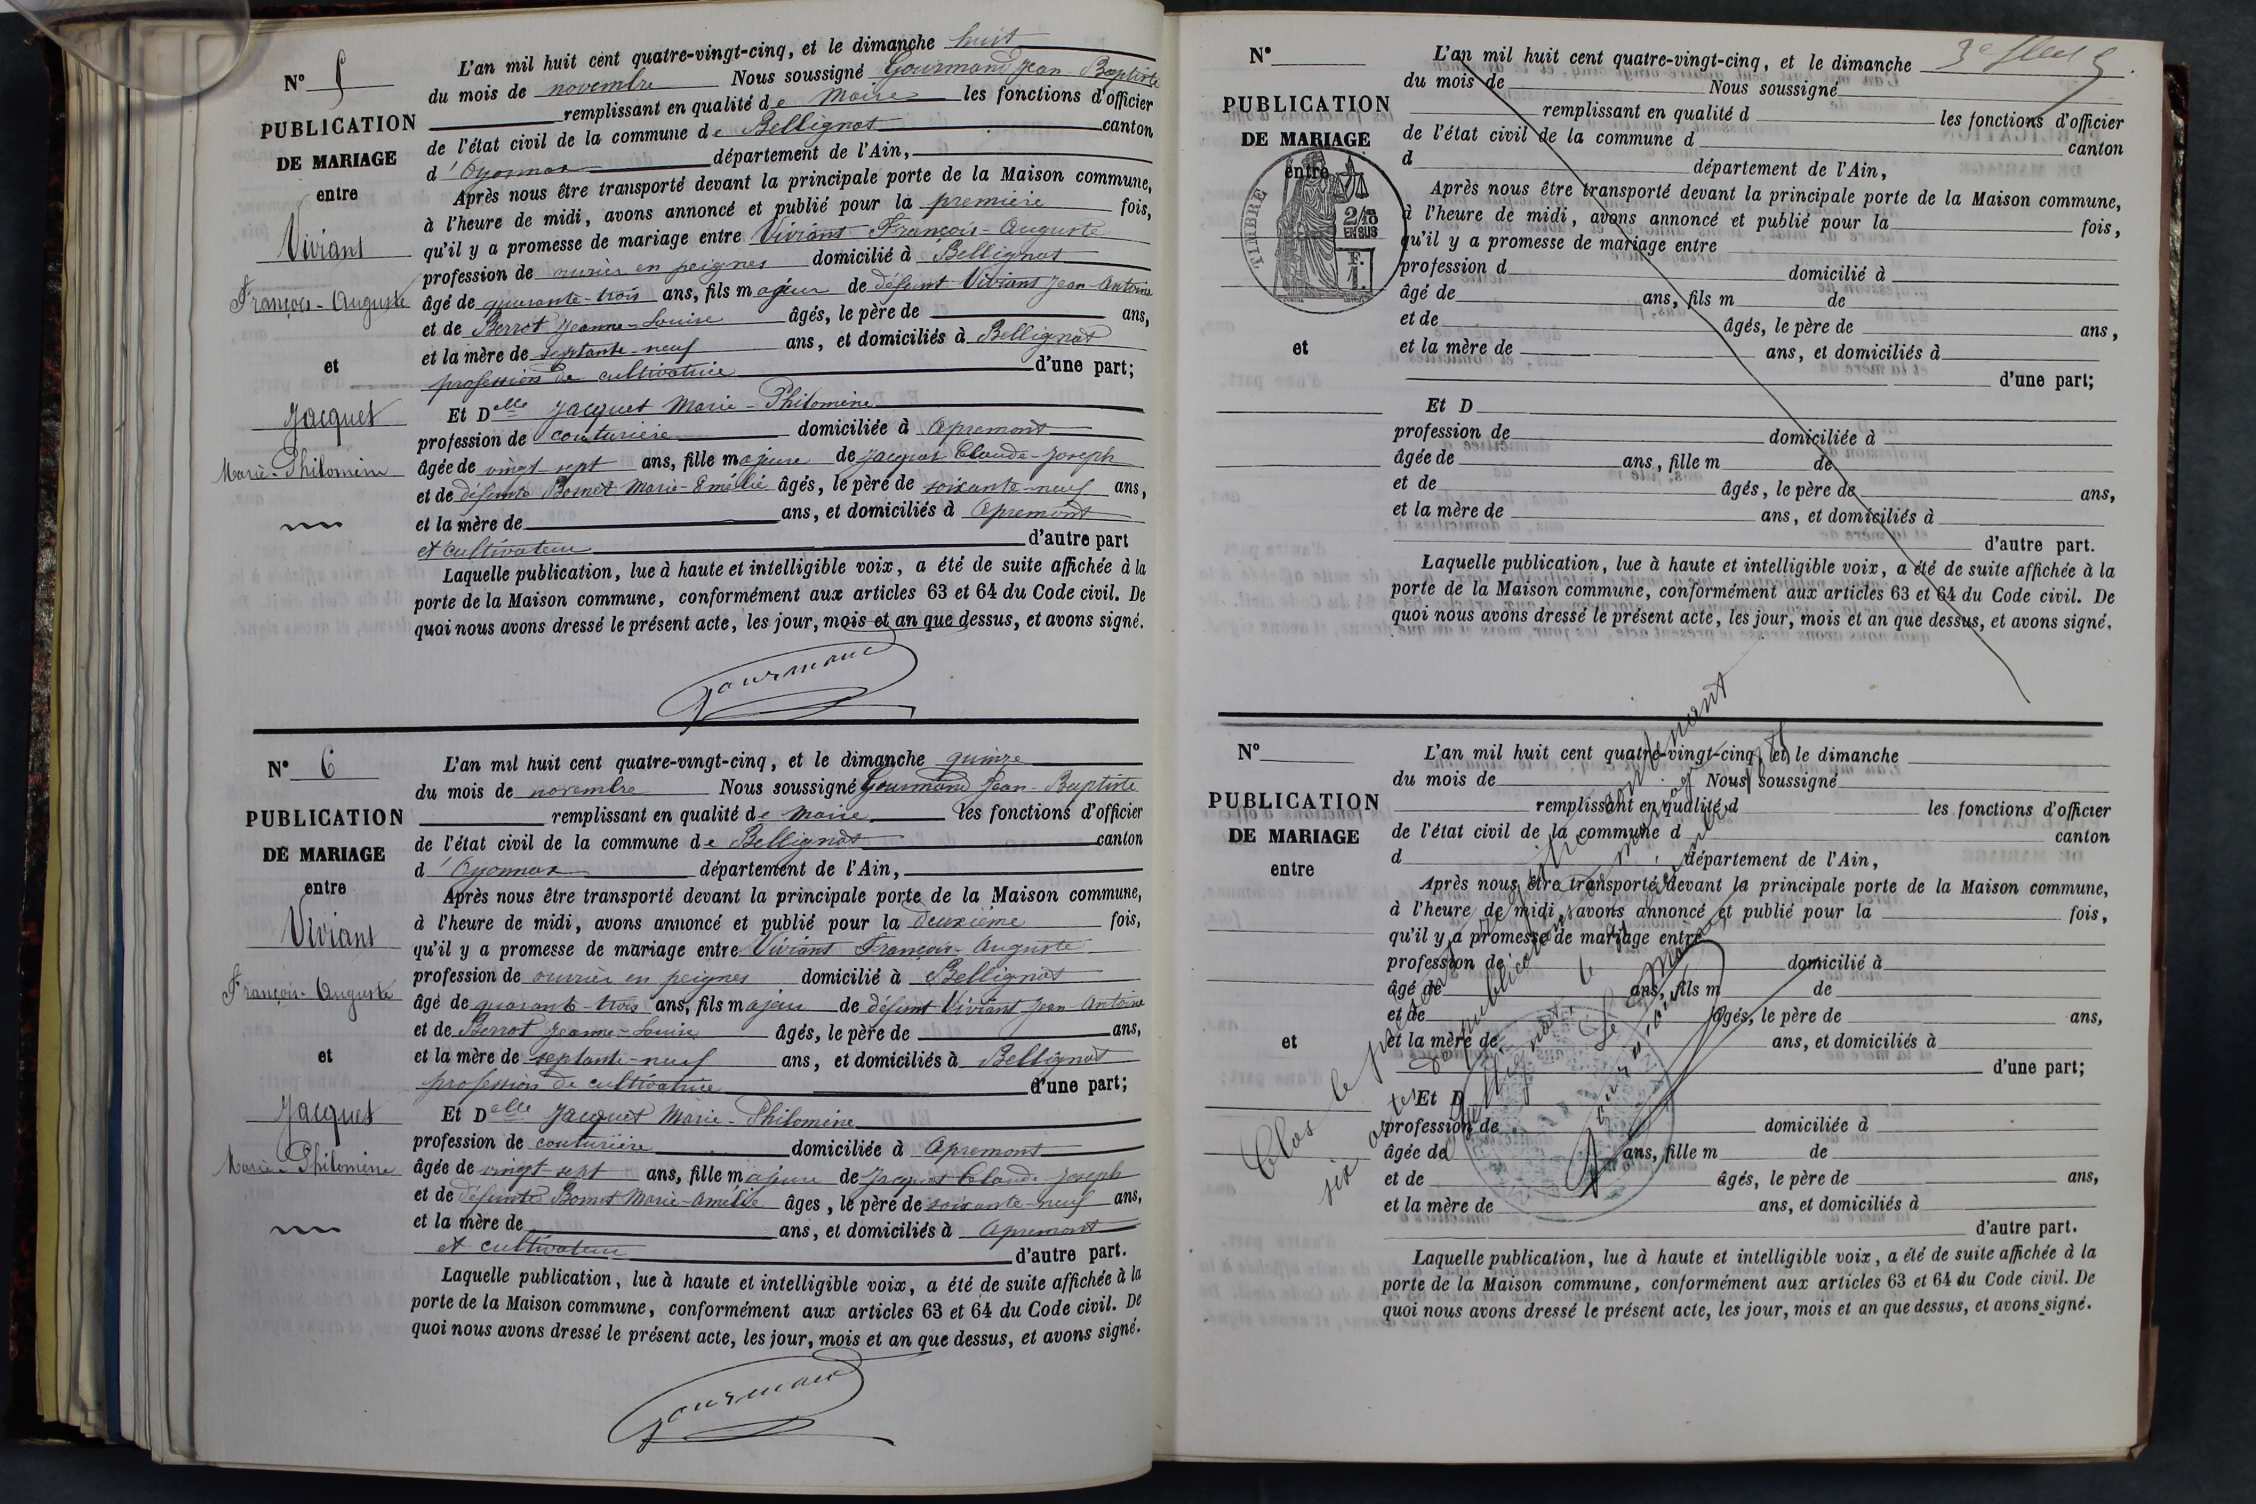 N° 5
PUBLICATION
DE MARIAGE
entre
Viviant
François-Auguste
et
Jacquet
Marie-Philomène
L'an mil huit cent quatre-vingt-cinq, et le dimanche huit
du mois de novembre Nous soussigné Gourmand Jean-Baptiste
remplissant en qualité de Maire les fonctions d'officier
de l'état civil de la commune de Bellignat canton
d'Oyonnax département de l'Ain,
Après nous être transporté devant la principale porte de la Maison commune,
à l'heure de midi, avons annoncé et publié pour la première fois,
qu'il y a promesse de mariage entre Viviant François-Auguste
profession de ouvrier en peignes domicilié à Bellignat
âgé de quarante-trois ans, fils majeur de défunt Viviant Jean-Antoine
et de Berrot Jeanne-Louise âgés, le père de ans,
et la mère de septante-neuf ans, et domiciliés à Bellignat
profession de cultivatrice d'une part;
Et Delle Jacquet Marie-Philomène
profession de couturière domiciliée à Apremont
âgée de vingt sept ans, fille majeure de Jacquet Claude-Joseph
et de défunte Bornet Marie-Emélie âgés, le père de soixante-neuf ans,
et la mère de ans, et domiciliés à Apremont
et cultivateur d'autre part
Laquelle publication, lue à haute et intelligible voix, a été de suite affichée à la
porte de la Maison commune, conformément aux articles 63 et 64 du Code civil. De
quoi nous avons dressé le présent acte, les jour, mois et an que dessus, et avons signé.
Gourmand
N° 6
PUBLICATION
DE MARIAGE
entre
Viviant
François-Auguste
et
Jacquet
Marie-Philomène
L'an mil huit cent quatre-vingt-cinq, et le dimanche quinze
du mois de novembre Nous soussigné Gourmand Jean-Baptiste
remplissant en qualité de Maire les fonctions d'officier
de l'état civil de la commune de Bellignat canton
d'Oyonnax département de l'Ain,
Après nous être transporté devant la principale porte de la Maison commune,
à l'heure de midi, avons annoncé et publié pour la deuxième fois,
qu'il y a promesse de mariage entre Viviant François-Auguste
profession de ouvrier en peignes domicilié à Bellignat
âgé de quarante-trois ans, fils majeur de défunt Viviant Jean-Antoine
et de Berrot Jeanne-Louise âgés, le père de ans,
et la mère de septante-neuf ans, et domiciliés à Bellignat
profession de cultivatrice d'une part;
Et Delle Jacquet Marie-Philomène
profession de couturière domiciliée à Apremont
âgée de vingt sept ans, fille majeure de Jacquet Claude-Joseph
et de défunte Bornet Marie-Amélie âgés, le père de soixante-neuf ans,
et la mère de ans, et domiciliés à Apremont
et cultivateur d'autre part.
Laquelle publication, lue à haute et intelligible voix, a été de suite affichée à la
porte de la Maison commune, conformément aux articles 63 et 64 du Code civil. De
quoi nous avons dressé le présent acte, les jour, mois et an que dessus, et avons signé.
Gourmand
3e
N°
PUBLICATION
DE MARIAGE
entre
TIMBRE
2/10
EN SUS
F.
1.
et
L'an mil huit cent quatre-vingt-cinq, et le dimanche
du mois de Nous soussigné
remplissant en qualité d les fonctions d'officier
de l'état civil de la commune d canton
d département de l'Ain,
Après nous être transporté devant la principale porte de la Maison commune,
à l'heure de midi, avons annoncé et publié pour la fois,
qu'il y a promesse de mariage entre
profession d domicilié à
âgé de ans, fils m de
et de âgés, le père de ans,
et la mère de ans, et domiciliés à
d'une part;
Et D
profession de domiciliée à
âgée de ans, fille m de
et de âgés, le père de ans,
et la mère de ans, et domiciliés à
d'autre part.
Laquelle publication, lue à haute et intelligible voix, a été de suite affichée à la
porte de la Maison commune, conformément aux articles 63 et 64 du Code civil. De
quoi nous avons dressé le présent acte, les jour, mois et an que dessus, et avons signé.
N°
PUBLICATION
DE MARIAGE
entre
et
L'an mil huit cent quatre-vingt-cinq, et le dimanche
du mois de Nous soussigné
remplissant en qualité d les fonctions d'officier
de l'état civil de la commune d canton
d département de l'Ain,
Après nous être transporté devant la principale porte de la Maison commune,
à l'heure de midi, avons annoncé et publié pour la fois,
qu'il y a promesse de mariage entre
profession de domicilié à
âgé de ans, fils m de
et de âgés, le père de ans,
et la mère de ans, et domiciliés à
d'une part;
Et D
profession de domiciliée à
âgée de ans, fille m de
et de âgés, le père de ans,
et la mère de ans, et domiciliés à
d'autre part.
Laquelle publication, lue à haute et intelligible voix, a été de suite affichée à la
porte de la Maison commune, conformément aux articles 63 et 64 du Code civil. De
quoi nous avons dressé le présent acte, les jour, mois et an que dessus, et avons signé.
Clos le présent registre contenant
six actes de publication de mariage
Bellignat, le
Le Maire,
Gourmand